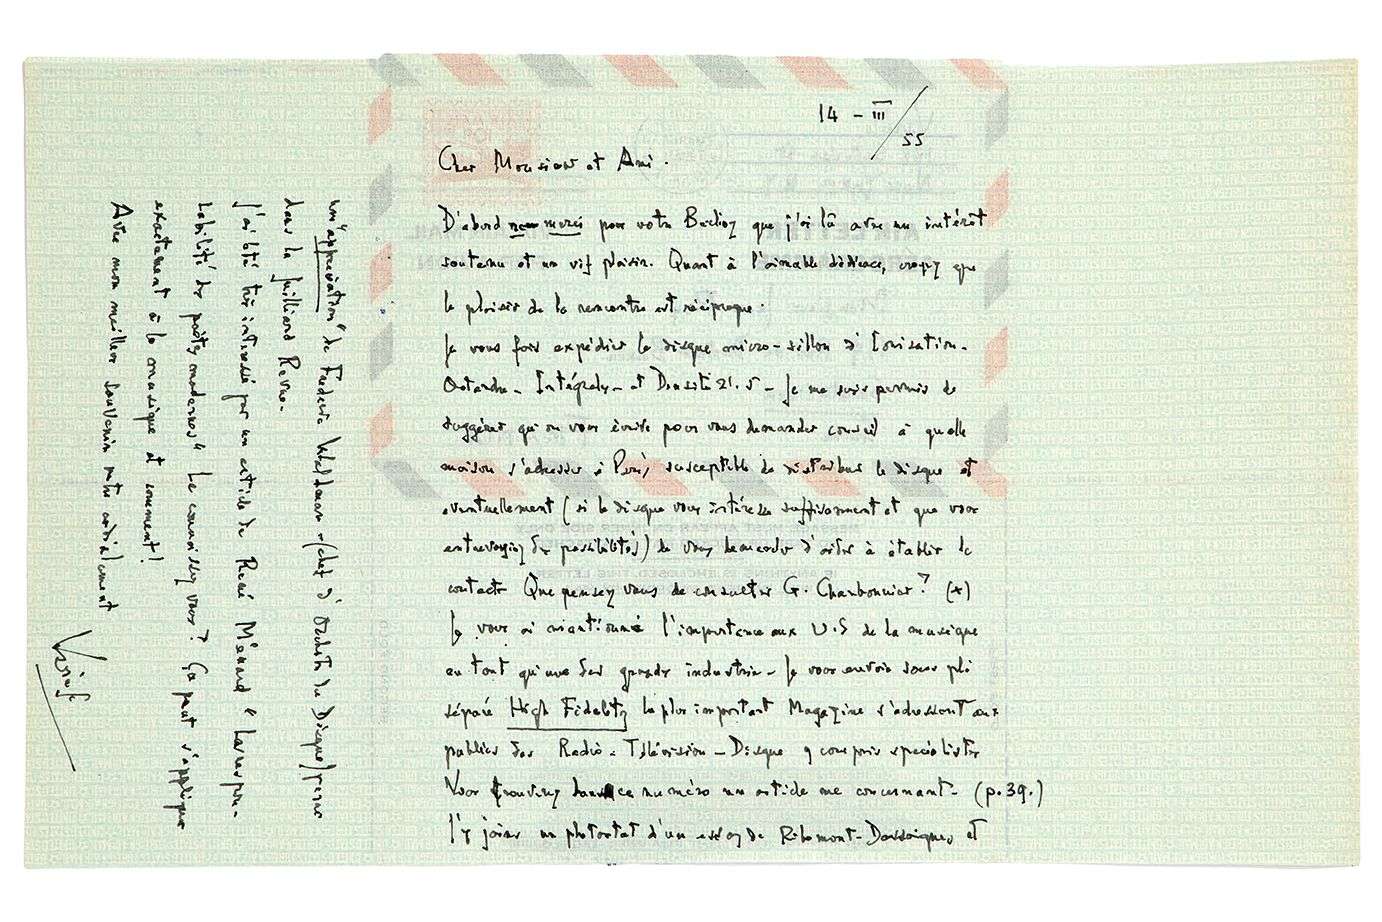 14 - III / 55
Cher Monsieur et Ami.
D'abord merci pour votre Berlioz que j'ai lû avec un intérêt
soutenu et un vif plaisir. Quant à l'aimable dédicace, croyez que
le plaisir de la rencontre est réciproque.
Je vous fais expédier le disque micro-sillon d'Ionisation-
Octandre - Intégrales - et Densité 21.5 - Je me suis permis de
suggérer qu'on vous écrive pour vous demander conseil à quelle
maison s'adresser à Paris susceptible de distribuer le disque et
éventuellement (si le disque vous intéresse suffisamment et que vous
entrevoyiez des possibilités) de vous demander d'aider à établir le
contact. Que pensez vous de consulter G. Charbonnier? (*)
Je vous ai mentionné l'importance aux U.S de la musique
en tant qu'une des grandes industries - Je vous envoie sous pli
séparé High Fidelity le plus important Magazine s'adressant aux
publics des Radio - Télévision - Disque y compris spécialistes
Vous trouverez dans ce numéro un article me concernant - (p.39.)
J'y joins un photostat d'un essay de Ribemont-Dessaignes et
un "appreciation" de Frederic Waldman - (chef d'Orchestre du Disque) parue
dans la Juilliard Review.
J'ai été très intéressé par un article de René Ménard "La respon-
sabilité des poètes modernes" Le connaissez vous? Ça peut s'appliquer
exactement à la musique et comment!
Avec mon meilleur souvenir votre cordialement
Varèse